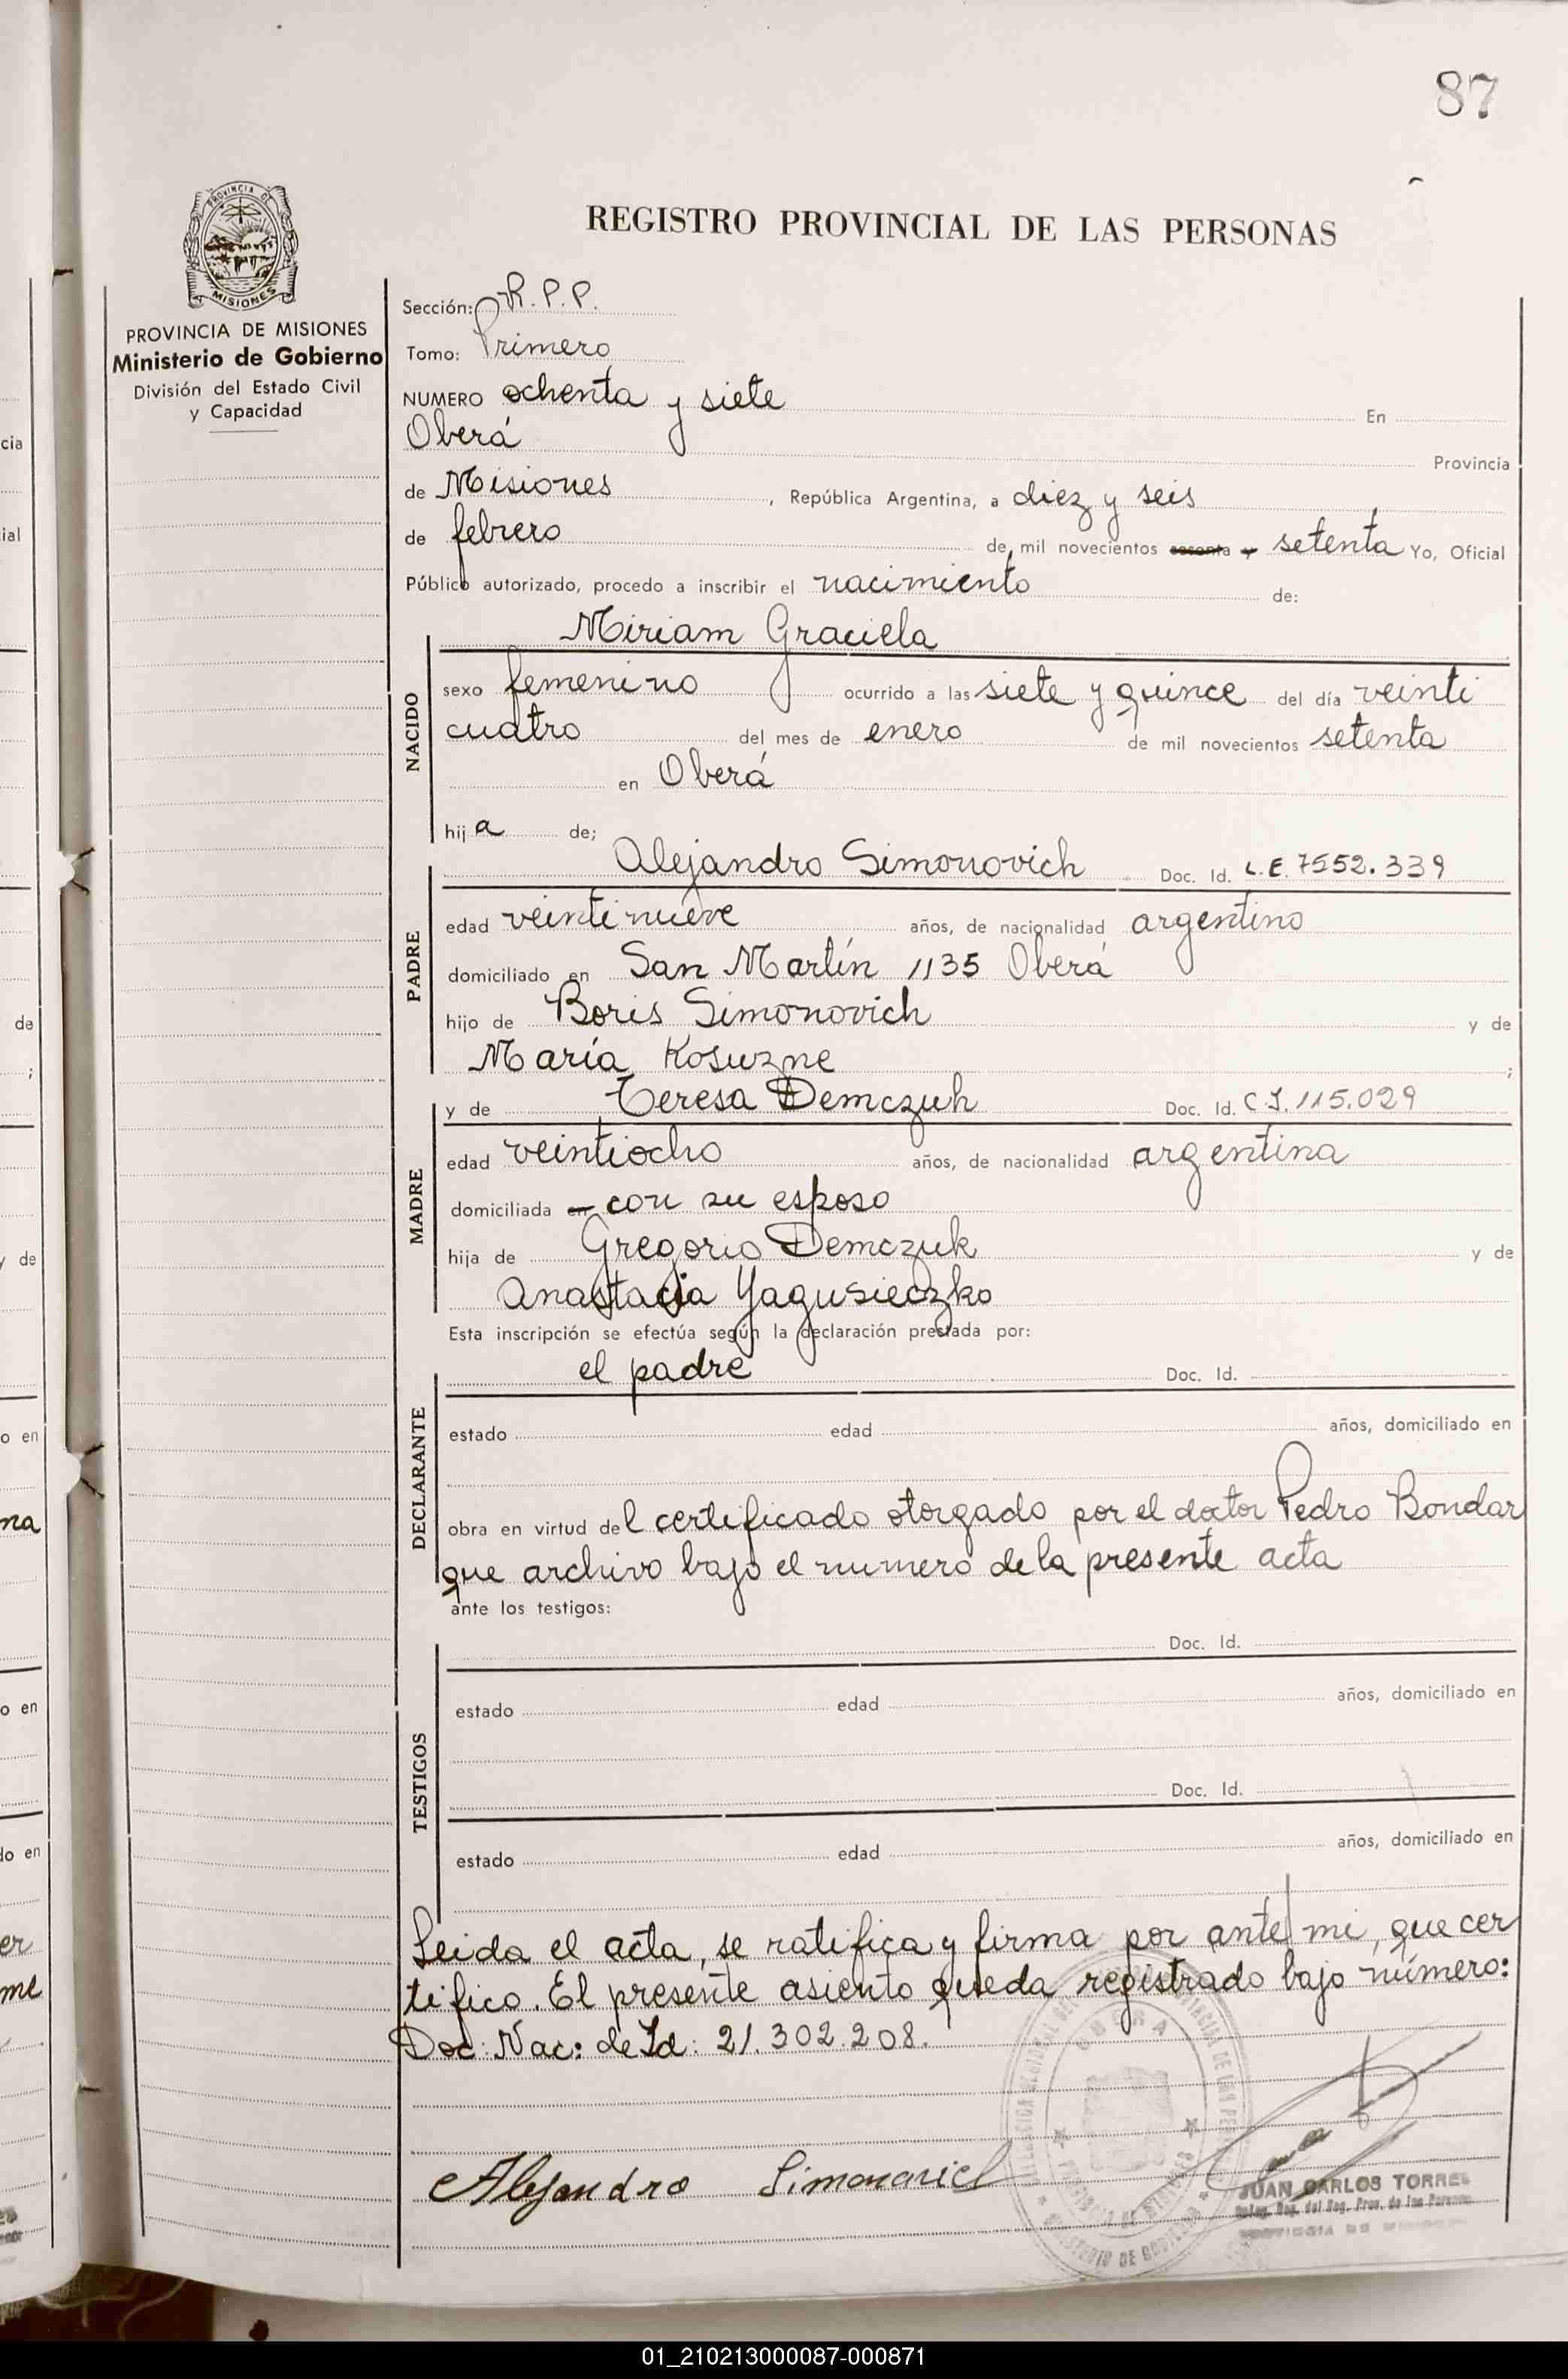 87
REGISTRO PROVINCIAL DE LAS PERSONAS
PROVINCIA DE
MISIONES
PROVINCIA DE MISIONES
Ministerio de Gobierno
División del Estado Civil
y Capacidad
Sección: R.P.P.
Tomo: Primero
NUMERO ochenta y siete En
Oberá Provincia
de Misiones, República Argentina, a diez y seis
de febrero de mil novecientos sesenta y setenta Yo, Oficial
Público autorizado, procedo a inscribir el nacimiento de:
Miriam Graciela
NACIDO
sexo femenino ocurrido a las siete y quince del día veinti
cuatro del mes de enero de mil novecientos setenta
en Oberá
hija de;
Alejandro Simonovich Doc. Id. L.E. 7552.339
PADRE
edad veintinueve años, de nacionalidad argentino
domiciliado en San Martín 1135 Oberá
hijo de Boris Simonovich y de
María Kosuzne ;
y de Teresa Demczuk Doc. Id. C.I. 115.029
MADRE
edad veintiocho años, de nacionalidad argentina
domiciliada en con su esposo
hija de Gregorio Demczuk y de
Anastacia Yagusieczko
Esta inscripción se efectúa según la declaración prestada por:
el padre Doc. Id.
DECLARANTE
estado edad años, domiciliado en
obra en virtud del certificado otorgado por el doctor Pedro Bondar
que archivo bajo el numero de la presente acta
ante los testigos:
Doc. Id.
TESTIGOS
estado edad años, domiciliado en
Doc. Id.
estado edad años, domiciliado en
Leida el acta, se ratifica y firma por ante mi, que cer
tifico. El presente asiento queda registrado bajo número:
Doc: Nac: de Id: 21.302.208.
OBERA
Alejandro Simonovich
JUAN CARLOS TORRES
01_210213000087-000871